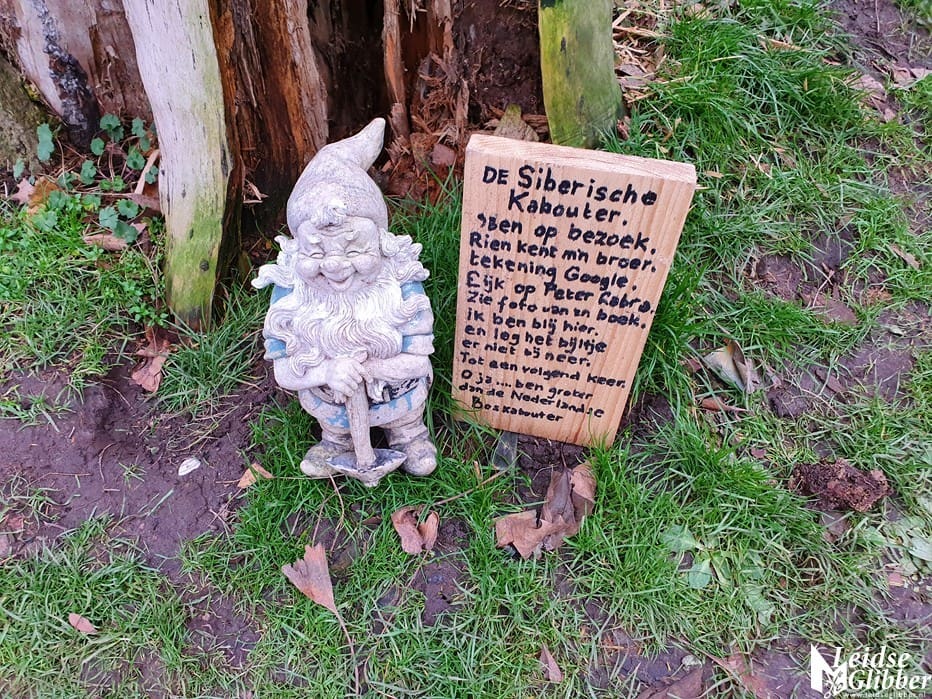 DE Siberische
Kabouter.
'Ben op bezoek,
Rien kent m'n broer.
tekening Google.
Lijk op Peter Fabra.
Zie foto van zn boek.
ik ben blij hier.
en leg het bijltje
er niet bij neer.
Tot een volgend keer.
O ja .... ben groter
dan de Nederlandse
Boskabouter
Leidse
Glibber
www.leidseglibber.nl